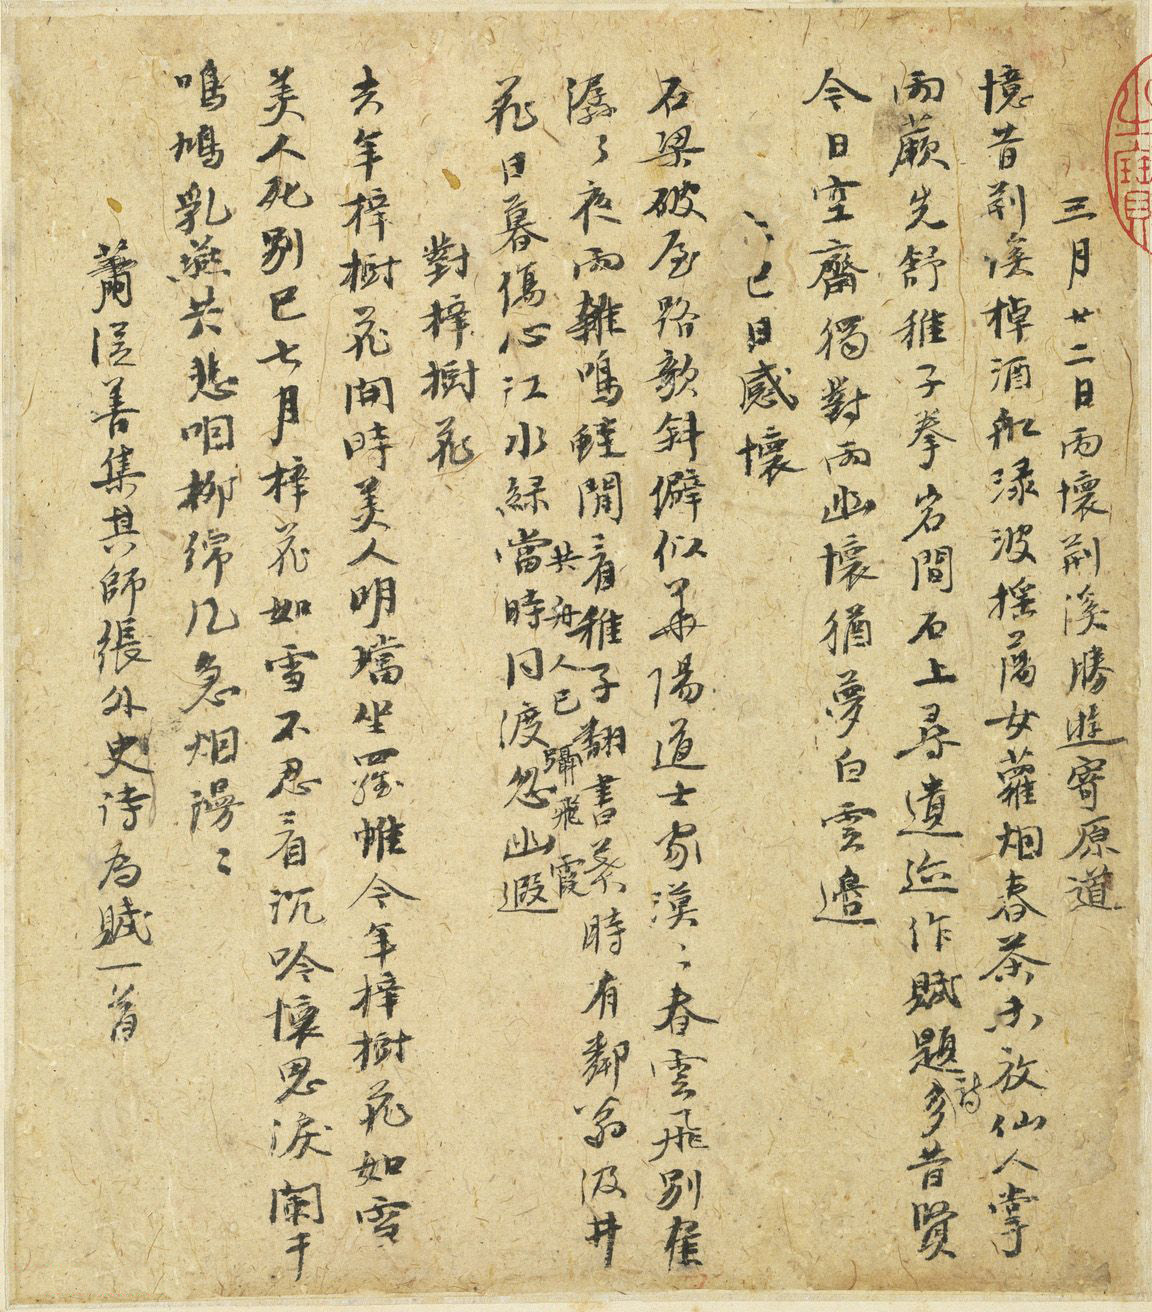 三月廿二日雨懷荆溪勝遊寄原道
憶昔荆溪棹酒船渌波摇蕩女蘿烟春茶未放仙人掌
雨蕨先舒稚子拳岩間石上尋遺迹作賦題詩多昔賢
今日空齋獨對雨幽懷猶夢白雲邊
己日感懷
石梁破屋路欹斜僻似華陽道士家漠〻春雲飛別崔
潺〻夜雨雜鳴鼃閒看稚子翻書葉時有鄰翁汲井
花日暮傷心江水緑當時同渡忽幽遐
共舟人已躡飛霞
對梓樹花
去年梓樹花開時美人明璫坐羅帷今年梓樹花如雪
美人死別已七月梓花如雪不忍看沉吟懷思淚闌干
鳴鳩乳燕共悲咽柳綿風急烟漫〻
蕭從善集其師張外史詩為賦一首